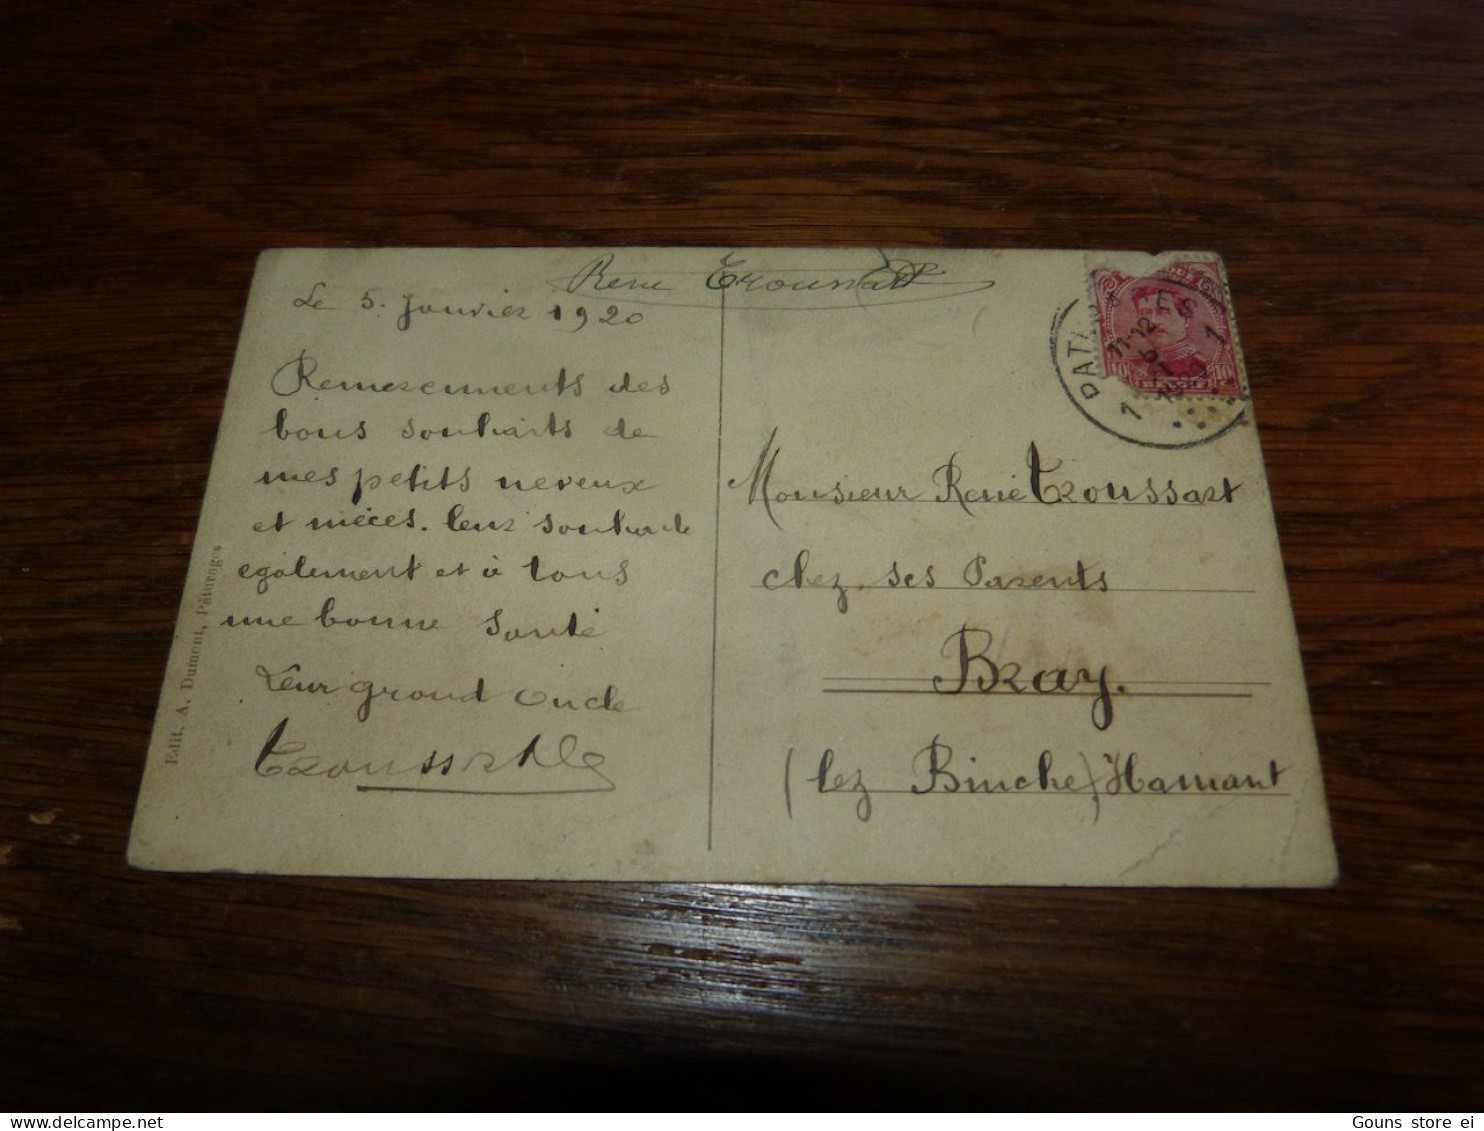 René Troussart
Le 5. Janvier 1920
Remerciements des
bons souhaits de
mes petits neveux
et nièces. leur souhaite
également et à tous
une bonne santé
Leur grand Oncle
Troussart
Edit. A. Dumont, Pâturages
11-12
6
1
10 10
1 1
Monsieur René Troussart
chez ses Parents
Bray.
(lez Binche) Hainaut
Gouns store ei